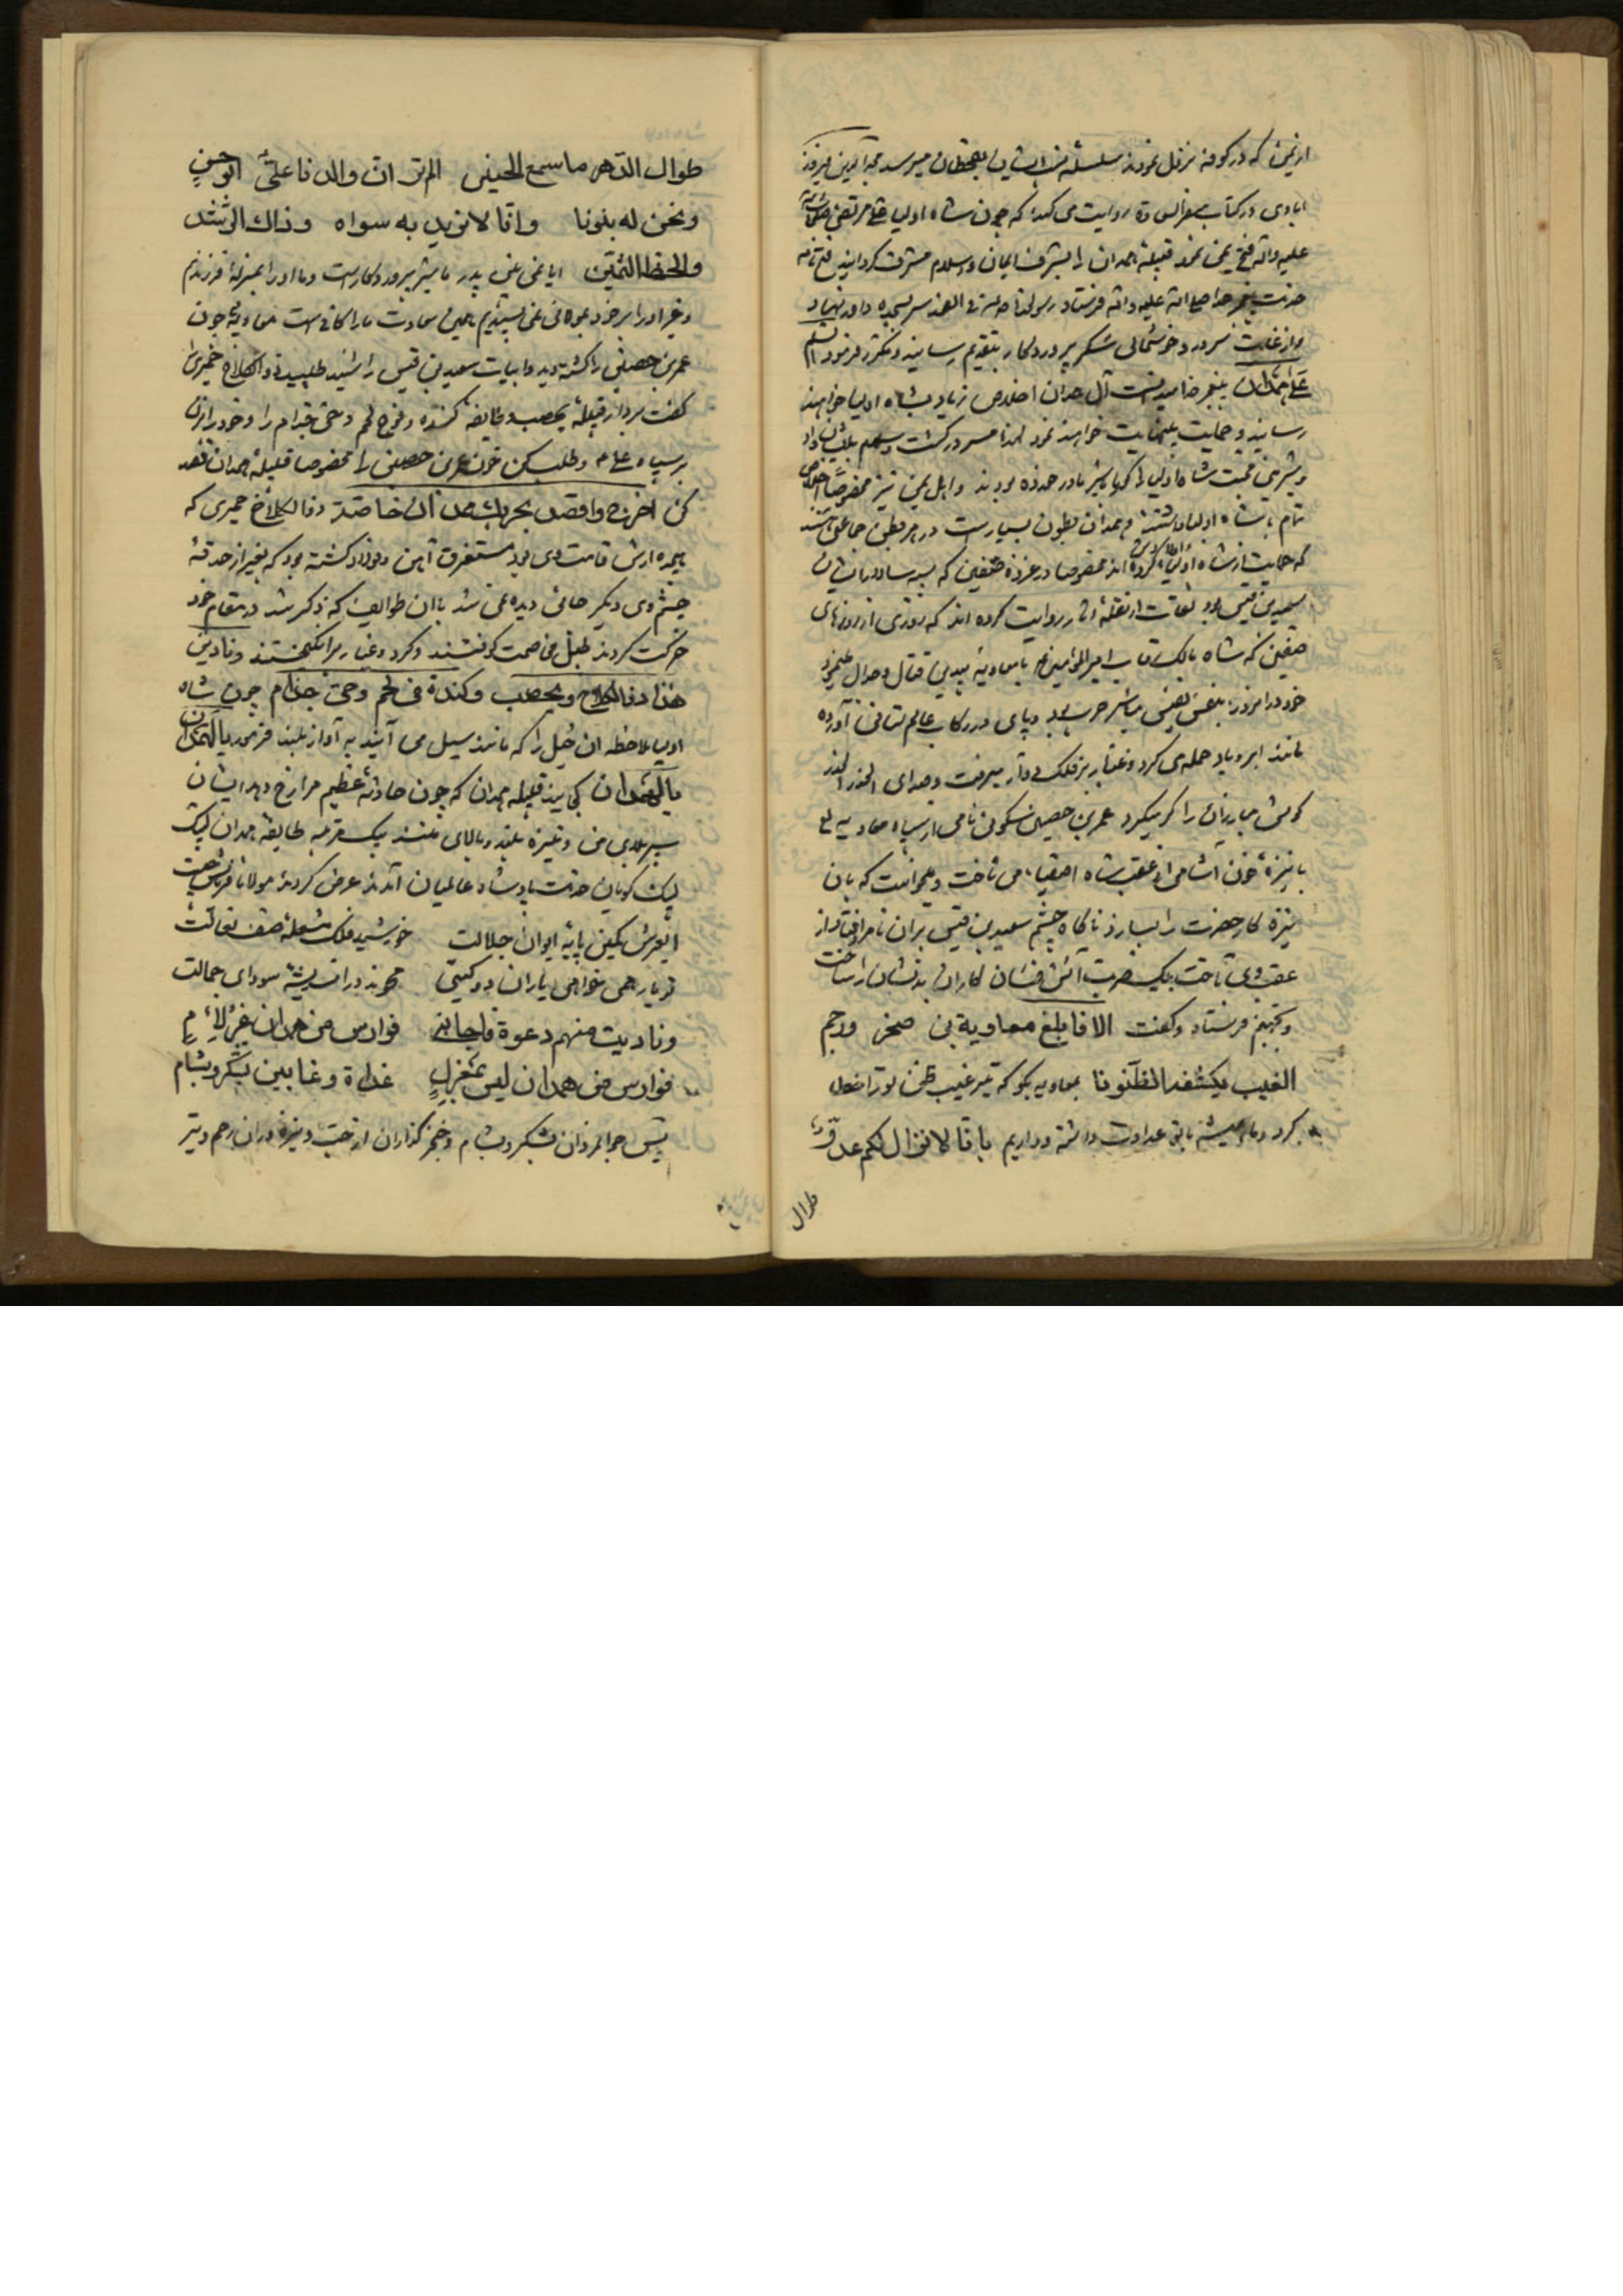 از یمن که در کوفه نزول نمودند سلسله نسب ایشان بقحطان میرسد مجدالدین فیروز
ابادی در کتاب سفر السعادة روایت می کند که چون شاه اولیا علی مرتضی صلوات الله
علیه واله فتح یمن نمود قبیله همدان را بشرف ایمان و اسلام مشرف گردانید فتح نامه
حضرت پیغمبر خدا صلی الله علیه واله فرستاد رسول خدا سر بسجده نهاد
و از غایت سرور و خوشحالی شکر پروردگار بتقدیم رسانید و مکرر فرمود السلام
علی همدان پیغمبر خدا میدانست آل همدان اخلاص زیاد بشاه اولیا خواهند
رسانید و حمایت بینهایت خواهند نمود لهذا مسرور گشت و سلام بایشان داد
و بشیرینی محبت شاه اولیا گویا با شیر مادر خورده بودند و اهل یمن نیز مخصوصا اخلاص
تمام با شاه اولیا داشتند و همدان بطون بسیارست در هر بطن جماعتی هستند
که حمایت از شاه اولیا کرده اند مخصوصا در غزوة صفین که سپه سالار ایشان
سعید بن قیس بود ثقات از نقله اثار روایت کرده اند که روزی از روزهای
صفین که شاه مالک رقاب امیرالمؤمنین با معاویه بیدین قتال و جدال مینمود
خود در انروز بنفس نفیس مباشر حرب بود و پای در رکاب عالم ستانی آورده
مانند ابر و باد حمله می کرد و غبار بر فلک دوار میرفت و صدای الحذر الحذر
گوش مبارزان را کر میکرد عمرو بن حصین سکونی نامی از سپاه معاویه
با نیزه خون آشامی از عقب شاه اصفیا می تاخت و میخواست که بان
نیزه کار حضرت را بسازد ناگاه چشم سعید بن قیس بران نامراد افتاد از
عقب وی تاخت بیک ضربت آتش فشان کار ان بد نشان را ساخت
و بجهنم فرستاد و گفت الا فابلغ معاویة بن صخر ورجم
الغیب یکشف الظنونا بمعاویه بگو که تیر غیب ظن تو را خطا
کرد و ما همیشه با تو عداوت داشته و داریم بانا لا نزال لکم عدو
طوال
طوال الدهر ما سمع الحنین الم تر ان والدنا علی ابو حسن
ونحن له بنونا وانا لا نرید به سواه وذاک الرشد
والحظ الثمین ایا نمی بینی پدر ما شیر پروردگارست و ما او را بمنزله فرزندیم
و غیر او را بر خود بمولائی نمی پسندیم همین سعادت ما را کافی است معاویه چون
عمرو بن حصین را کشته دید و ابیات سعید بن قیس را شنید طلبید ذو الکلاع حمیری
گفت بردار قبیله یحصب و طایفه کنده و فوج لخم و حی جذام را و خود را بزن
بر سپاه علی و طلب کن خون عمرو بن حصین را مخصوصا قبیله همدان قصد
کن اخرج واقصد بحربک همدان خاصة ذو الکلاع حمیری که
حرکت کردند طبل مخاصمت کوفتند و گرد و غبار برانگیختند و نادین
هذا ذو الکلاع ویحصب وکندة فی لخم وحی جذام چون شاه
اولیا ملاحظه ان خیل را که مانند سیل می آیند به آواز بلند فرمود یا آل همدان
یا آل همدان کجایید قبیله همدان که چون حادثه عظیم مرا رخ دهد ایشان
سپر بلای من و نیزه بلند و بالای منند یک مرتبه طایفه همدان لبیک
لبیک گویان خدمت پادشاه عالمیان آمدند عرض کردند مولانا
ای عرش کمین پایه ایوان جلالت خورشید فلک شعله صف نعالت
تو یار همی خواهی یاران دو گیتی محوند در اندیشه سودای جمالت
ونادیت منهم دعوة فاجابنی فوارس من همدان غیر لئام
فوارس من همدان لیس بمعزل غداة وغا بین شکر وشبام
پس جوانمردان شکر و شبام و خنجر گذاران ارحب و نیزه وران رهم و تیر